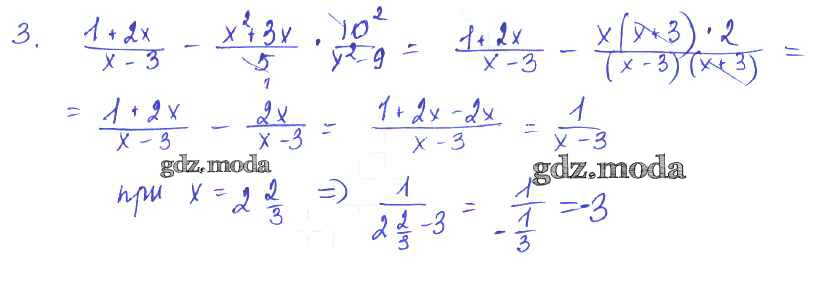 3. (1+2x)/(x-3) - (x²+3x)/5 · 10²/(x²-9) = (1+2x)/(x-3) - (x(x+3)·2)/((x-3)(x+3)) =
= (1+2x)/(x-3) - 2x/(x-3) = (1+2x-2x)/(x-3) = 1/(x-3)
gdz.moda gdz.moda
при x = 2 2/3 => 1/(2 2/3 - 3) = 1/(-1/3) = -3